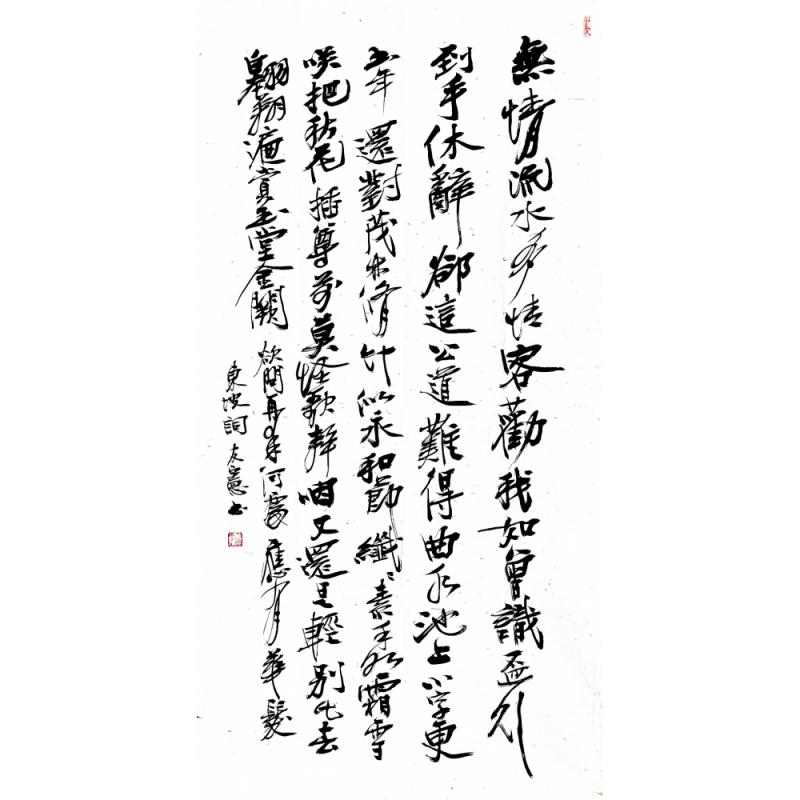 無情流水多情客勸我如曾識盃行
到手休辭郤這公道難得曲水池上小字更
書年還對茂林修竹似永和節纖〻素手如霜雪
咲把秋花插尊前莫怪歌聲咽又還是輕別此去
翱翔遍賞玉堂金闕欲問再来何處應有華髮
東坡詞友憲書